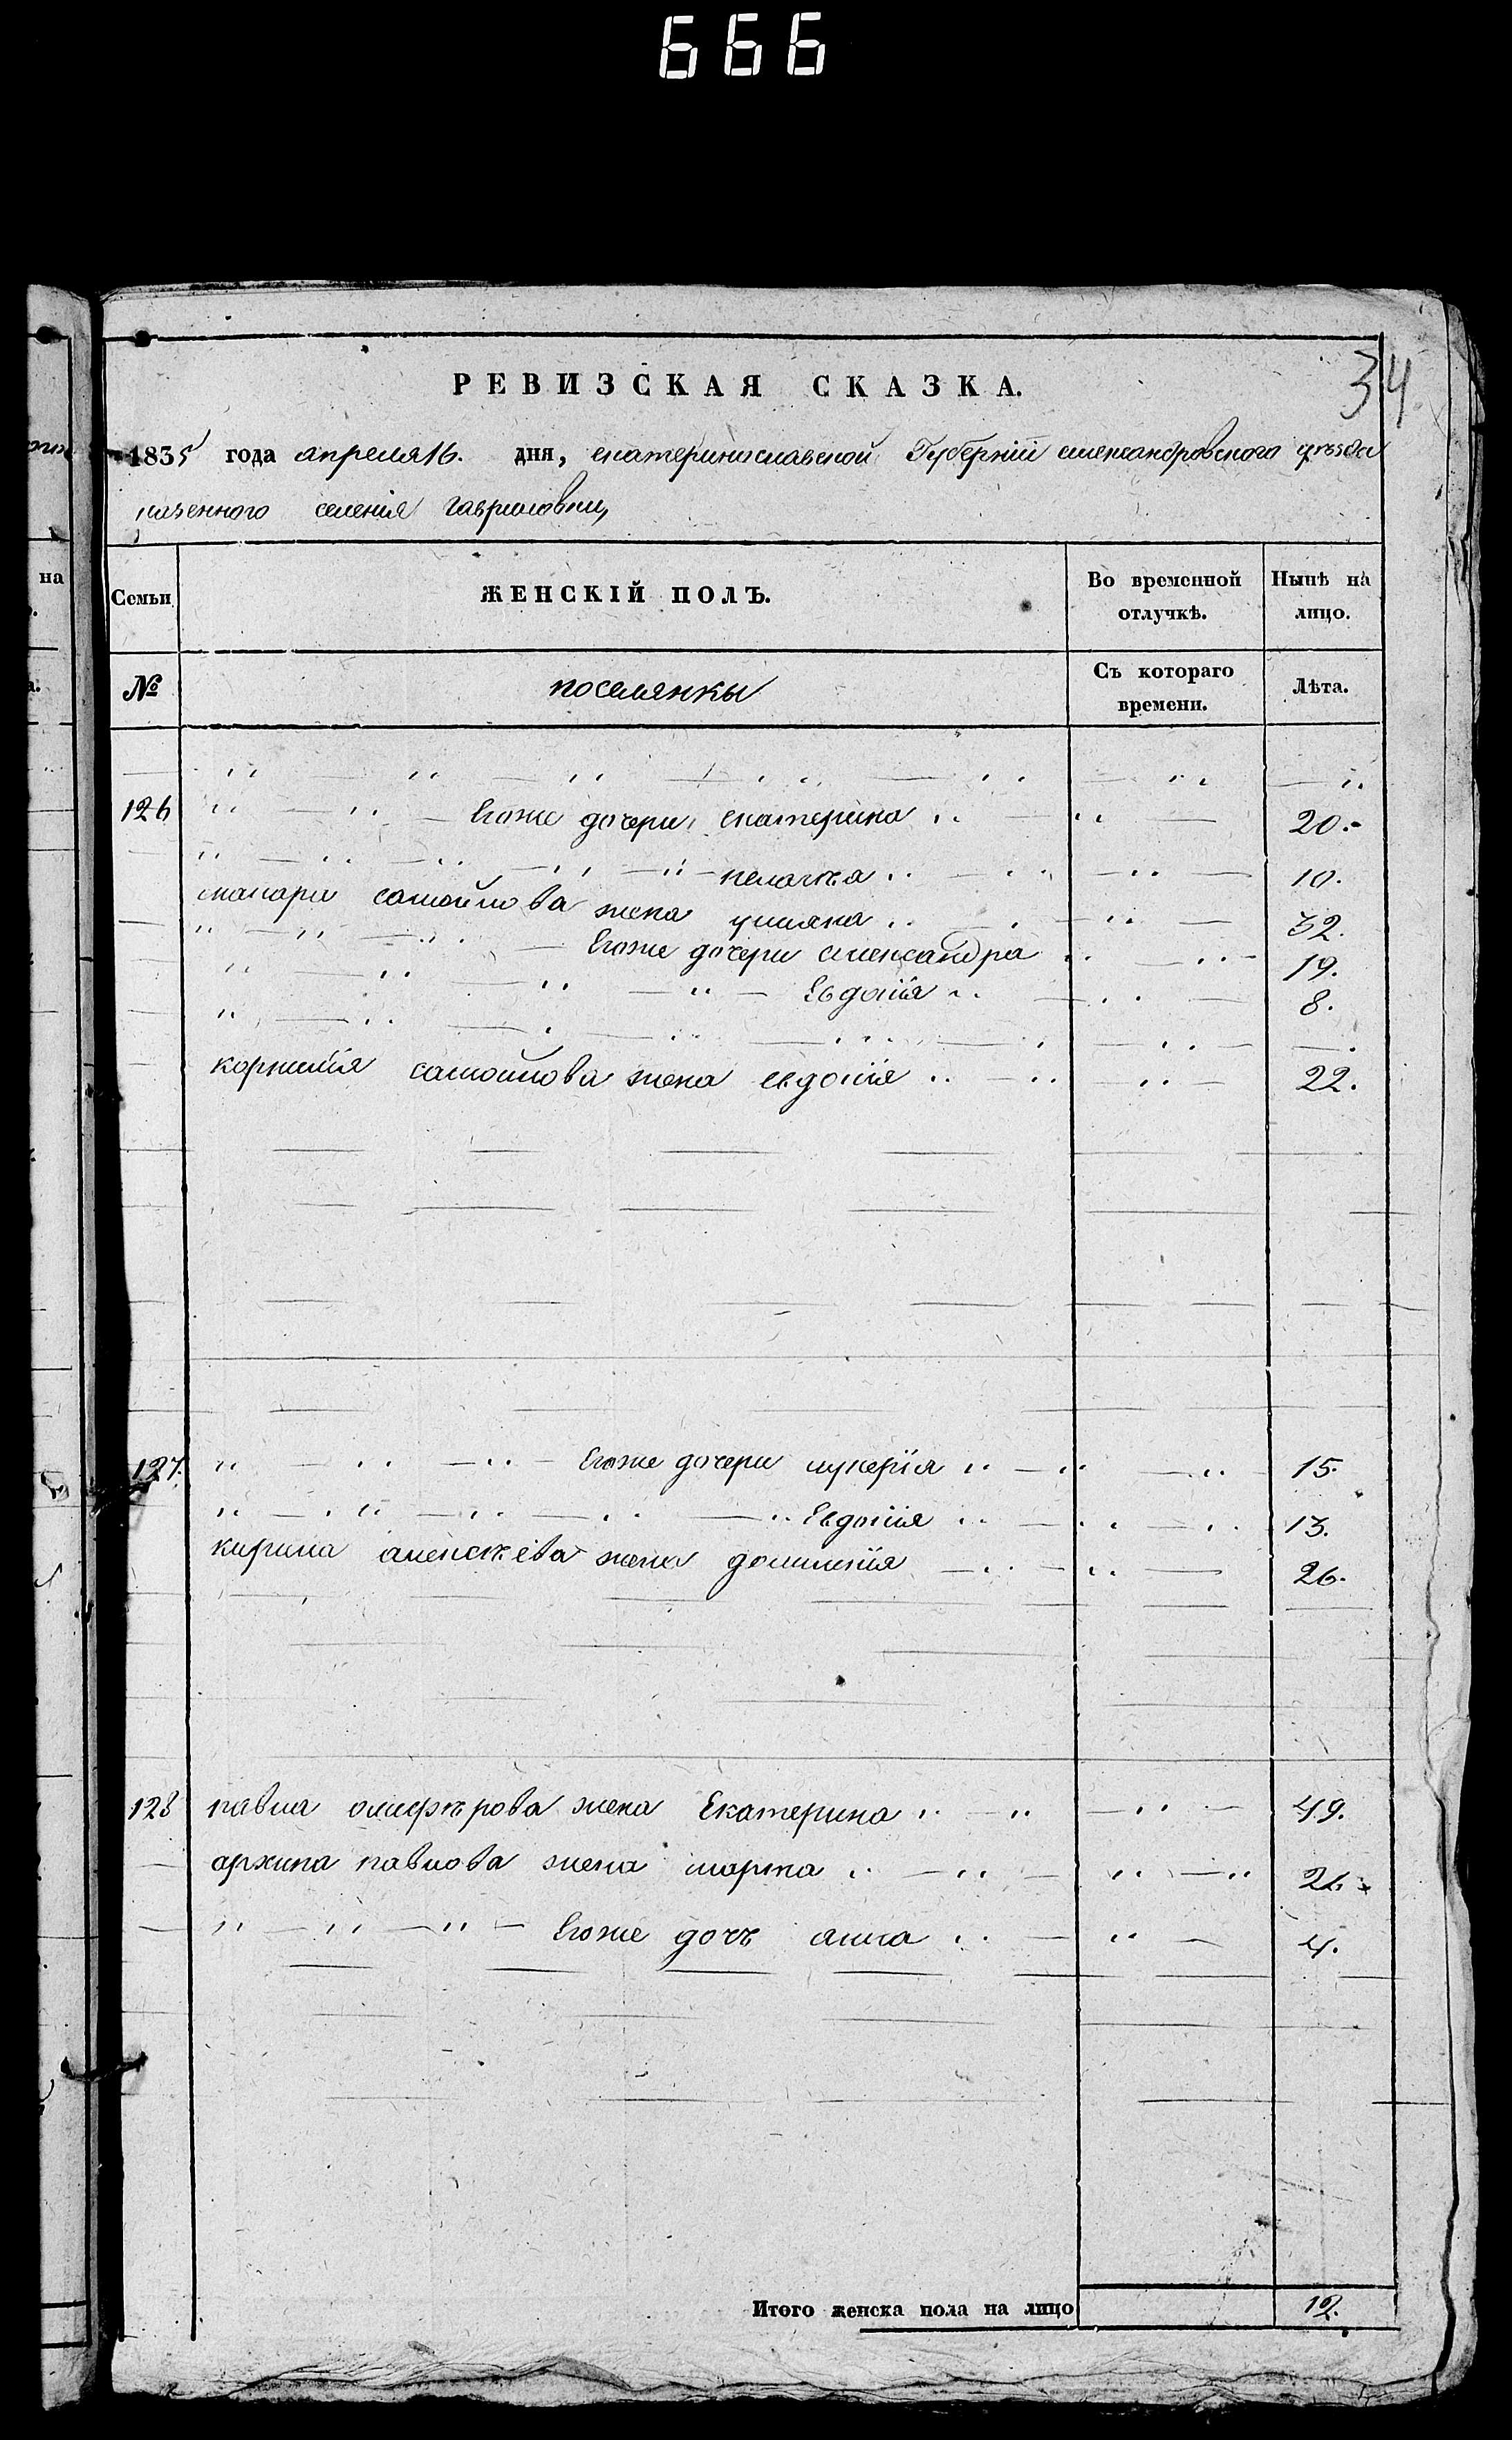 666
34
РЕВИЗСКАЯ СКАЗКА.
1835 года апреля 16. дня, екатеринославской Губернии александровского уезда
казенного селения гавриловки,
Семьи ЖЕНСКІЙ ПОЛЪ. Во временной отлучкѣ. Нынѣ на лицо.
№ поселянкы Съ котораго времени. Лѣта.
126 Егоже дочери, екатерина 20.
пелагѣа 10.
макара самойлова жена улияна 32.
Егоже дочери александра 19.
Евдокія 8.
корнилія самойлова жена евдокія 22.
127. Егоже дочери лукерія 15.
Евдокія 13.
кирила алексѣева жена домникія 26.
128 павла жена Екатерина 49.
архипа павлова жена марѳа 26.
Егоже дочъ анна 4.
Итого женска пола на лицо 12.